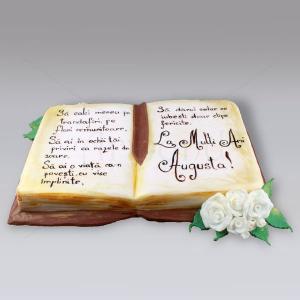 Să calci mereu pe
trandafiri, pe
flori nemuritoare.
Să ai în ochii tăi
priviri ca razele de
soare.
Să ai o viață ca-n
povești, cu vise
împlinite,
Să dărui celor ce
iubești doar clipe
fericite.
La Mulți Ani
Augusta!